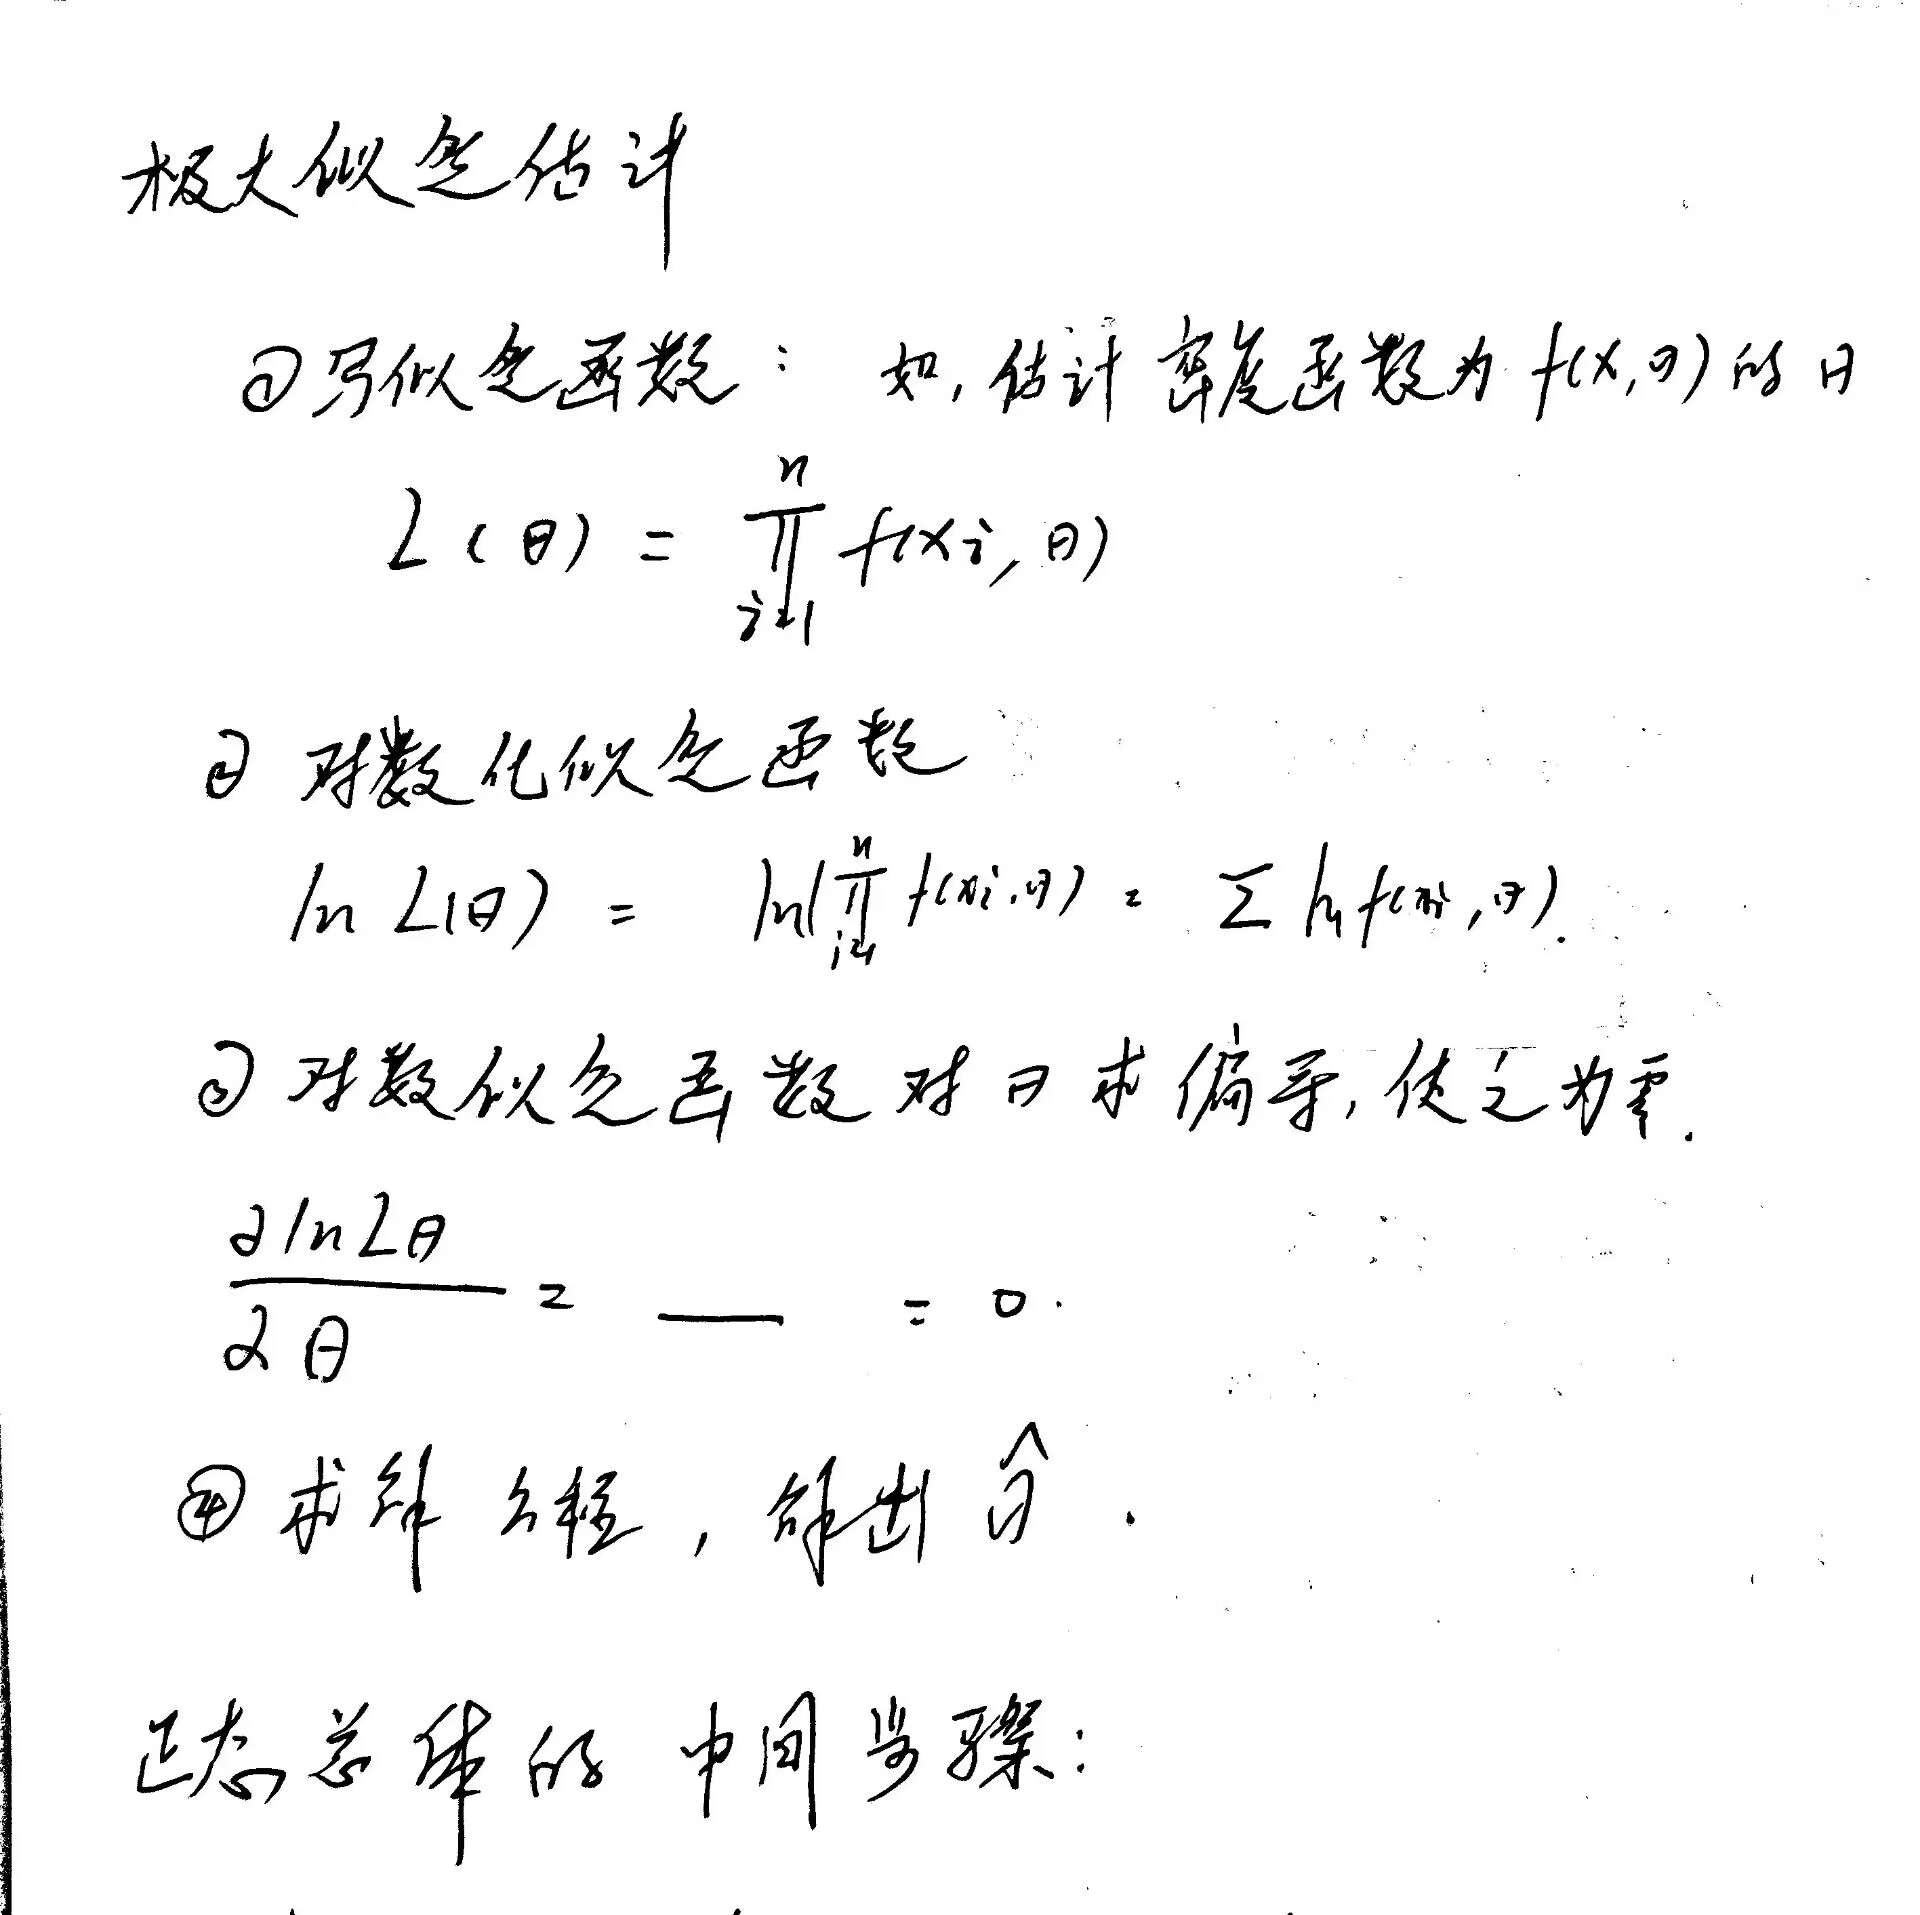 极大似然估计
①写似然函数： 如，估计密度函数为 f(x,θ) 的 θ
L(θ) = ∏_{i=1}^{n} f(xi, θ)
② 对数化似然函数
ln L(θ) = ln(∏_{i=1}^{n} f(xi,θ) = Σ ln f(xi,θ).
③ 对数似然函数对 θ 求偏导，使之为零.
∂lnLθ / ∂θ = — = 0.
④ 求解方程，解出 θ̂.
正态总体的中间步骤：